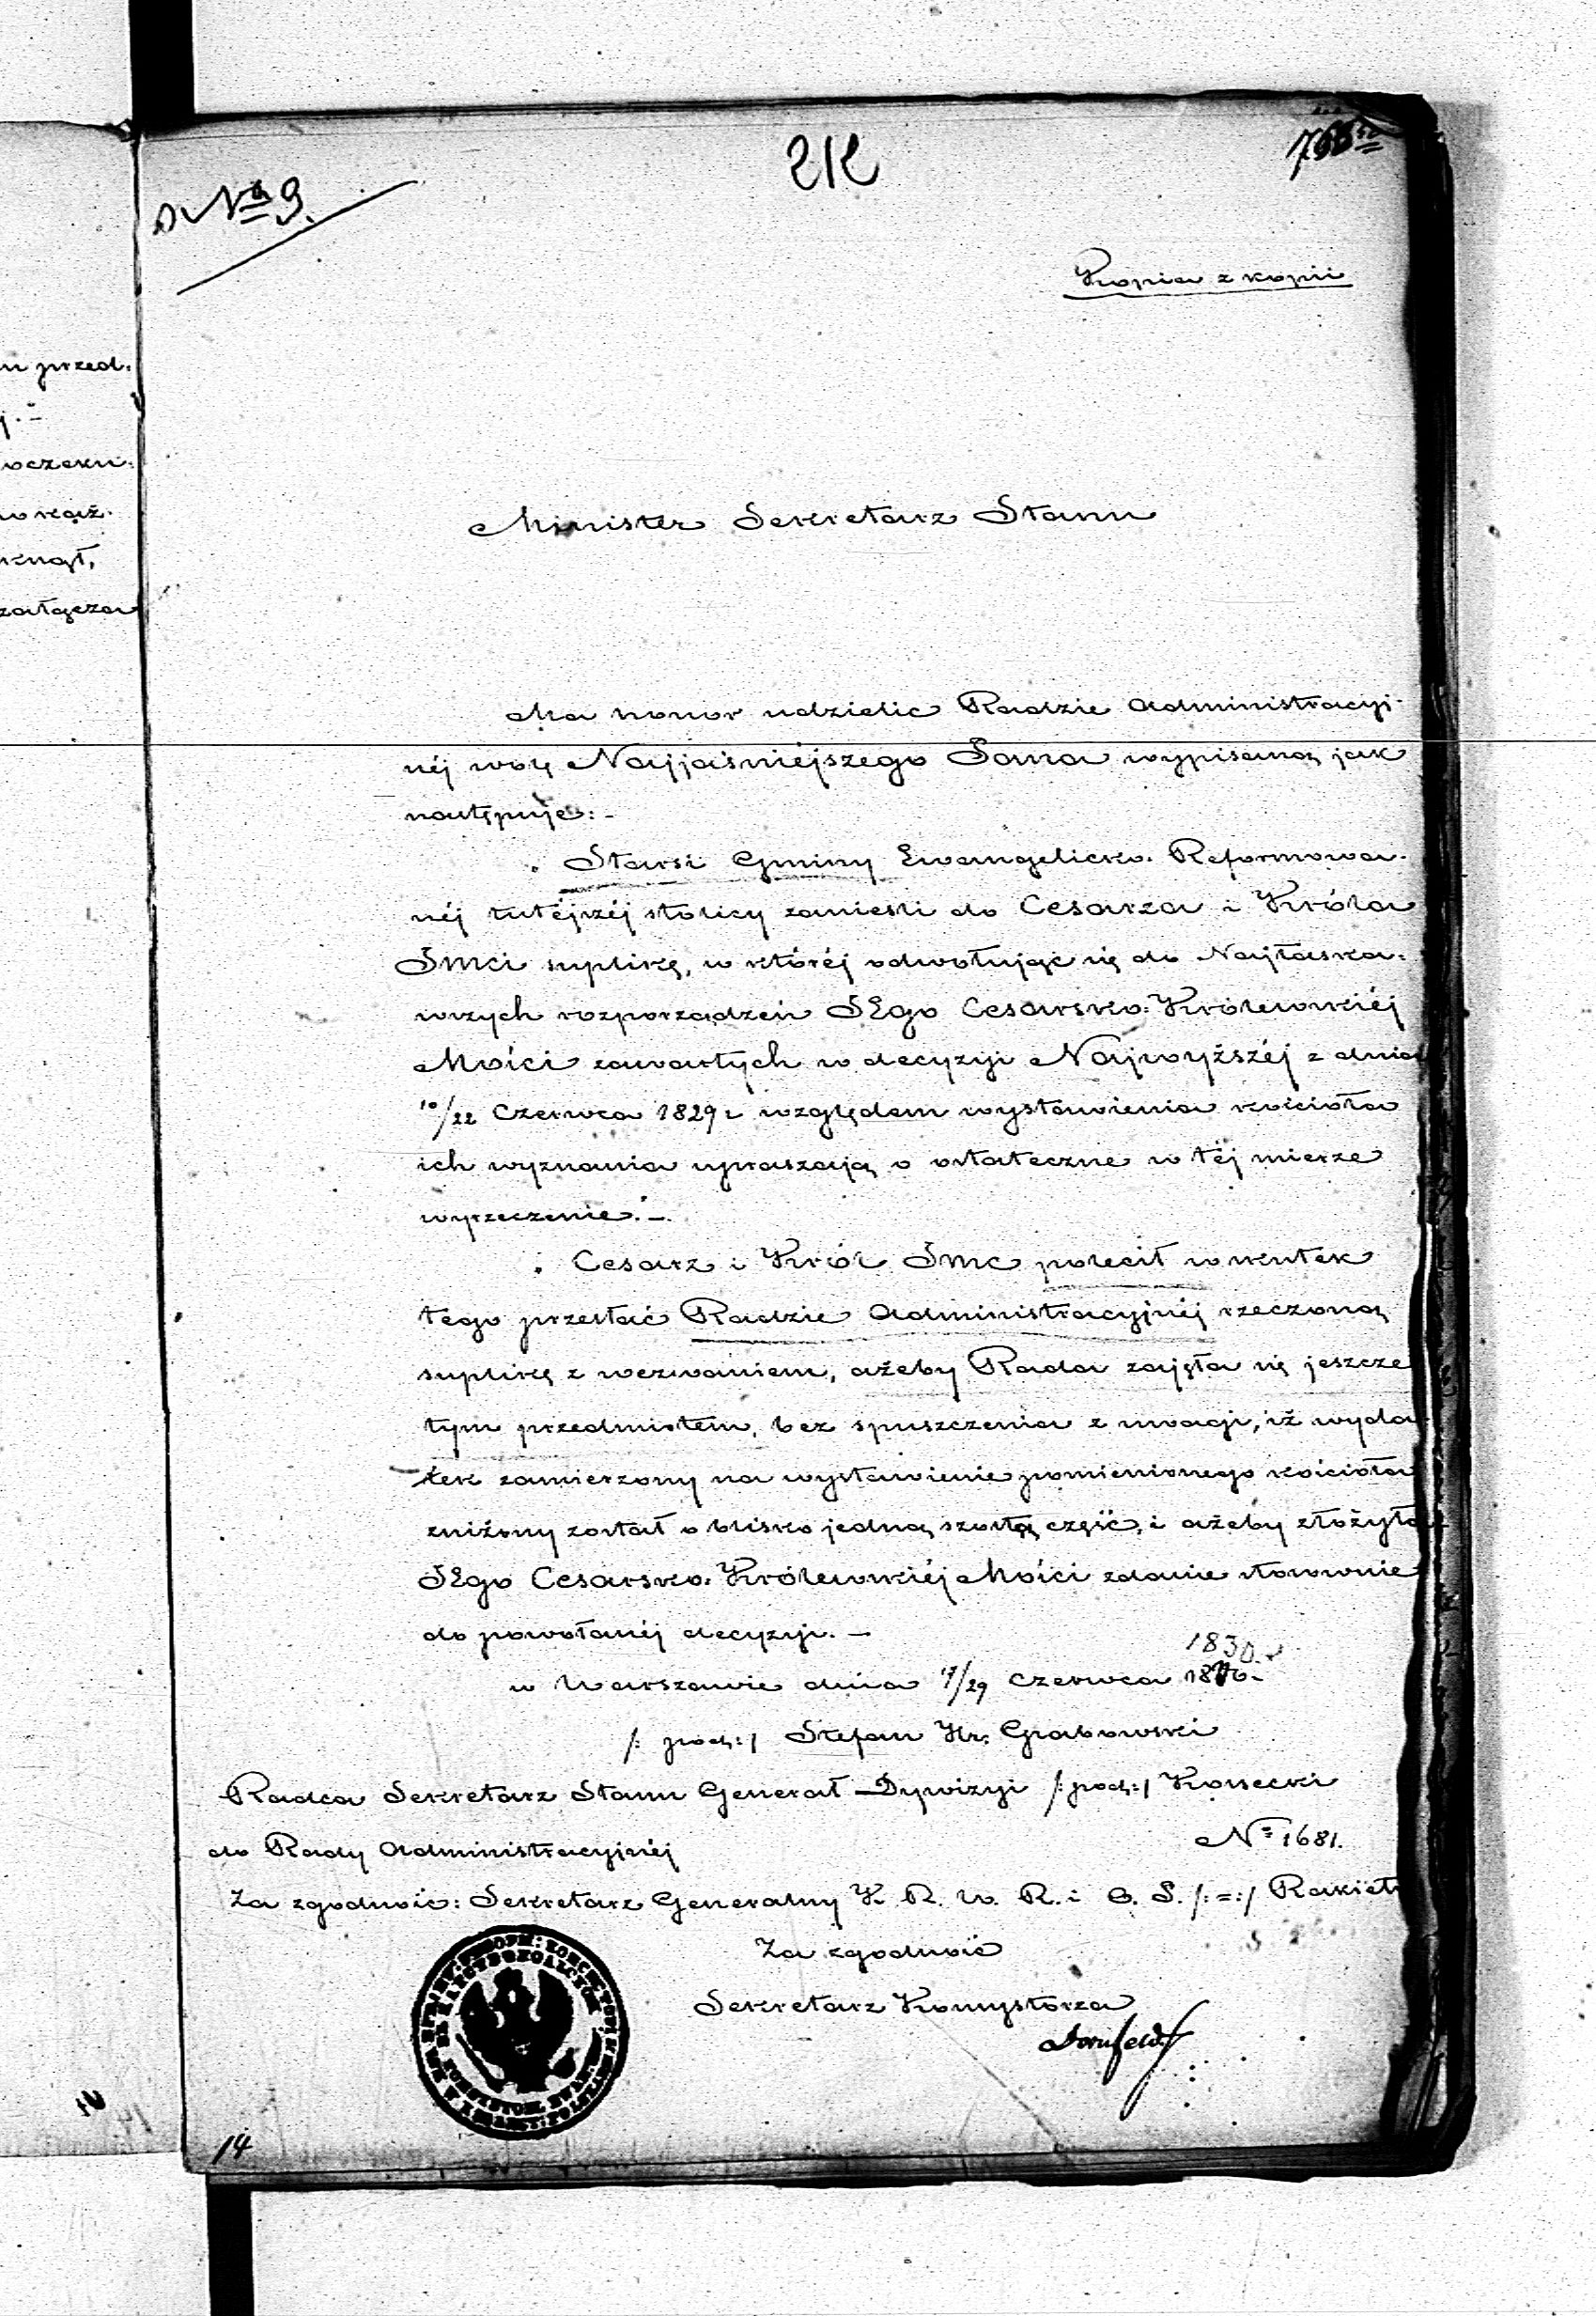 212
N° 9.
Kopia z kopii
n przed.
oczeku.
knął,
załącza
Minister Sekretarz Stanu
Ma honor udzielic Radzie Administracyj-
néj wolę Najjaśniéjszego Pana wypisaną jak
następuje: -
Starsi Gminy Ewangelicko. Reformowa.
néj tutéjszéj stolicy zanieśli do Cesarza i Króla
JMci suplikę, w któréj odwołując się do Najłaska.
wszych rozporządzeń JEgo Cesarsko. Królewskiéj
Mości zawartych w decyzyi Najwyższéj z dnia
10/22 Czerwca 1829 r względem wystawienia kościoła
ich wyznania upraszają o ostateczne w téj mierze
wyrzeczenie. -
Cesarz i Król JMc polecił w skutek
tego przesłać Radzie Administracyjnéj rzeczoną
suplikę z wezwaniem, ażeby Rada zajęła się jeszcze
tym przedmiotem, bez spuszczenia z uwagi, iż wyda
tek zamierzony na wystawienie pomienionego kościoła
zniżony został o blisko jedną szostą część, i ażeby złożyła
JEgo Cesarsko. Królewskiéj Mości zdanie stosownie
do powołanéj decyzyi. -
1830. r
w Warszawie dnia 17/29 Czerwca
/: pod: / Stefan Hr. Grabowski
Radca Sekretarz Stanu Generał Dywizyi /: pod: / Kossecki
do Rady Administracyjnéj
N° 1681.
Za zgodność: Sekretarz Generalny K. R. W. R. i O. P. /: = : / Rakiet
Za zgodność
Sekretarz Konsystorza
Dornfeld
14